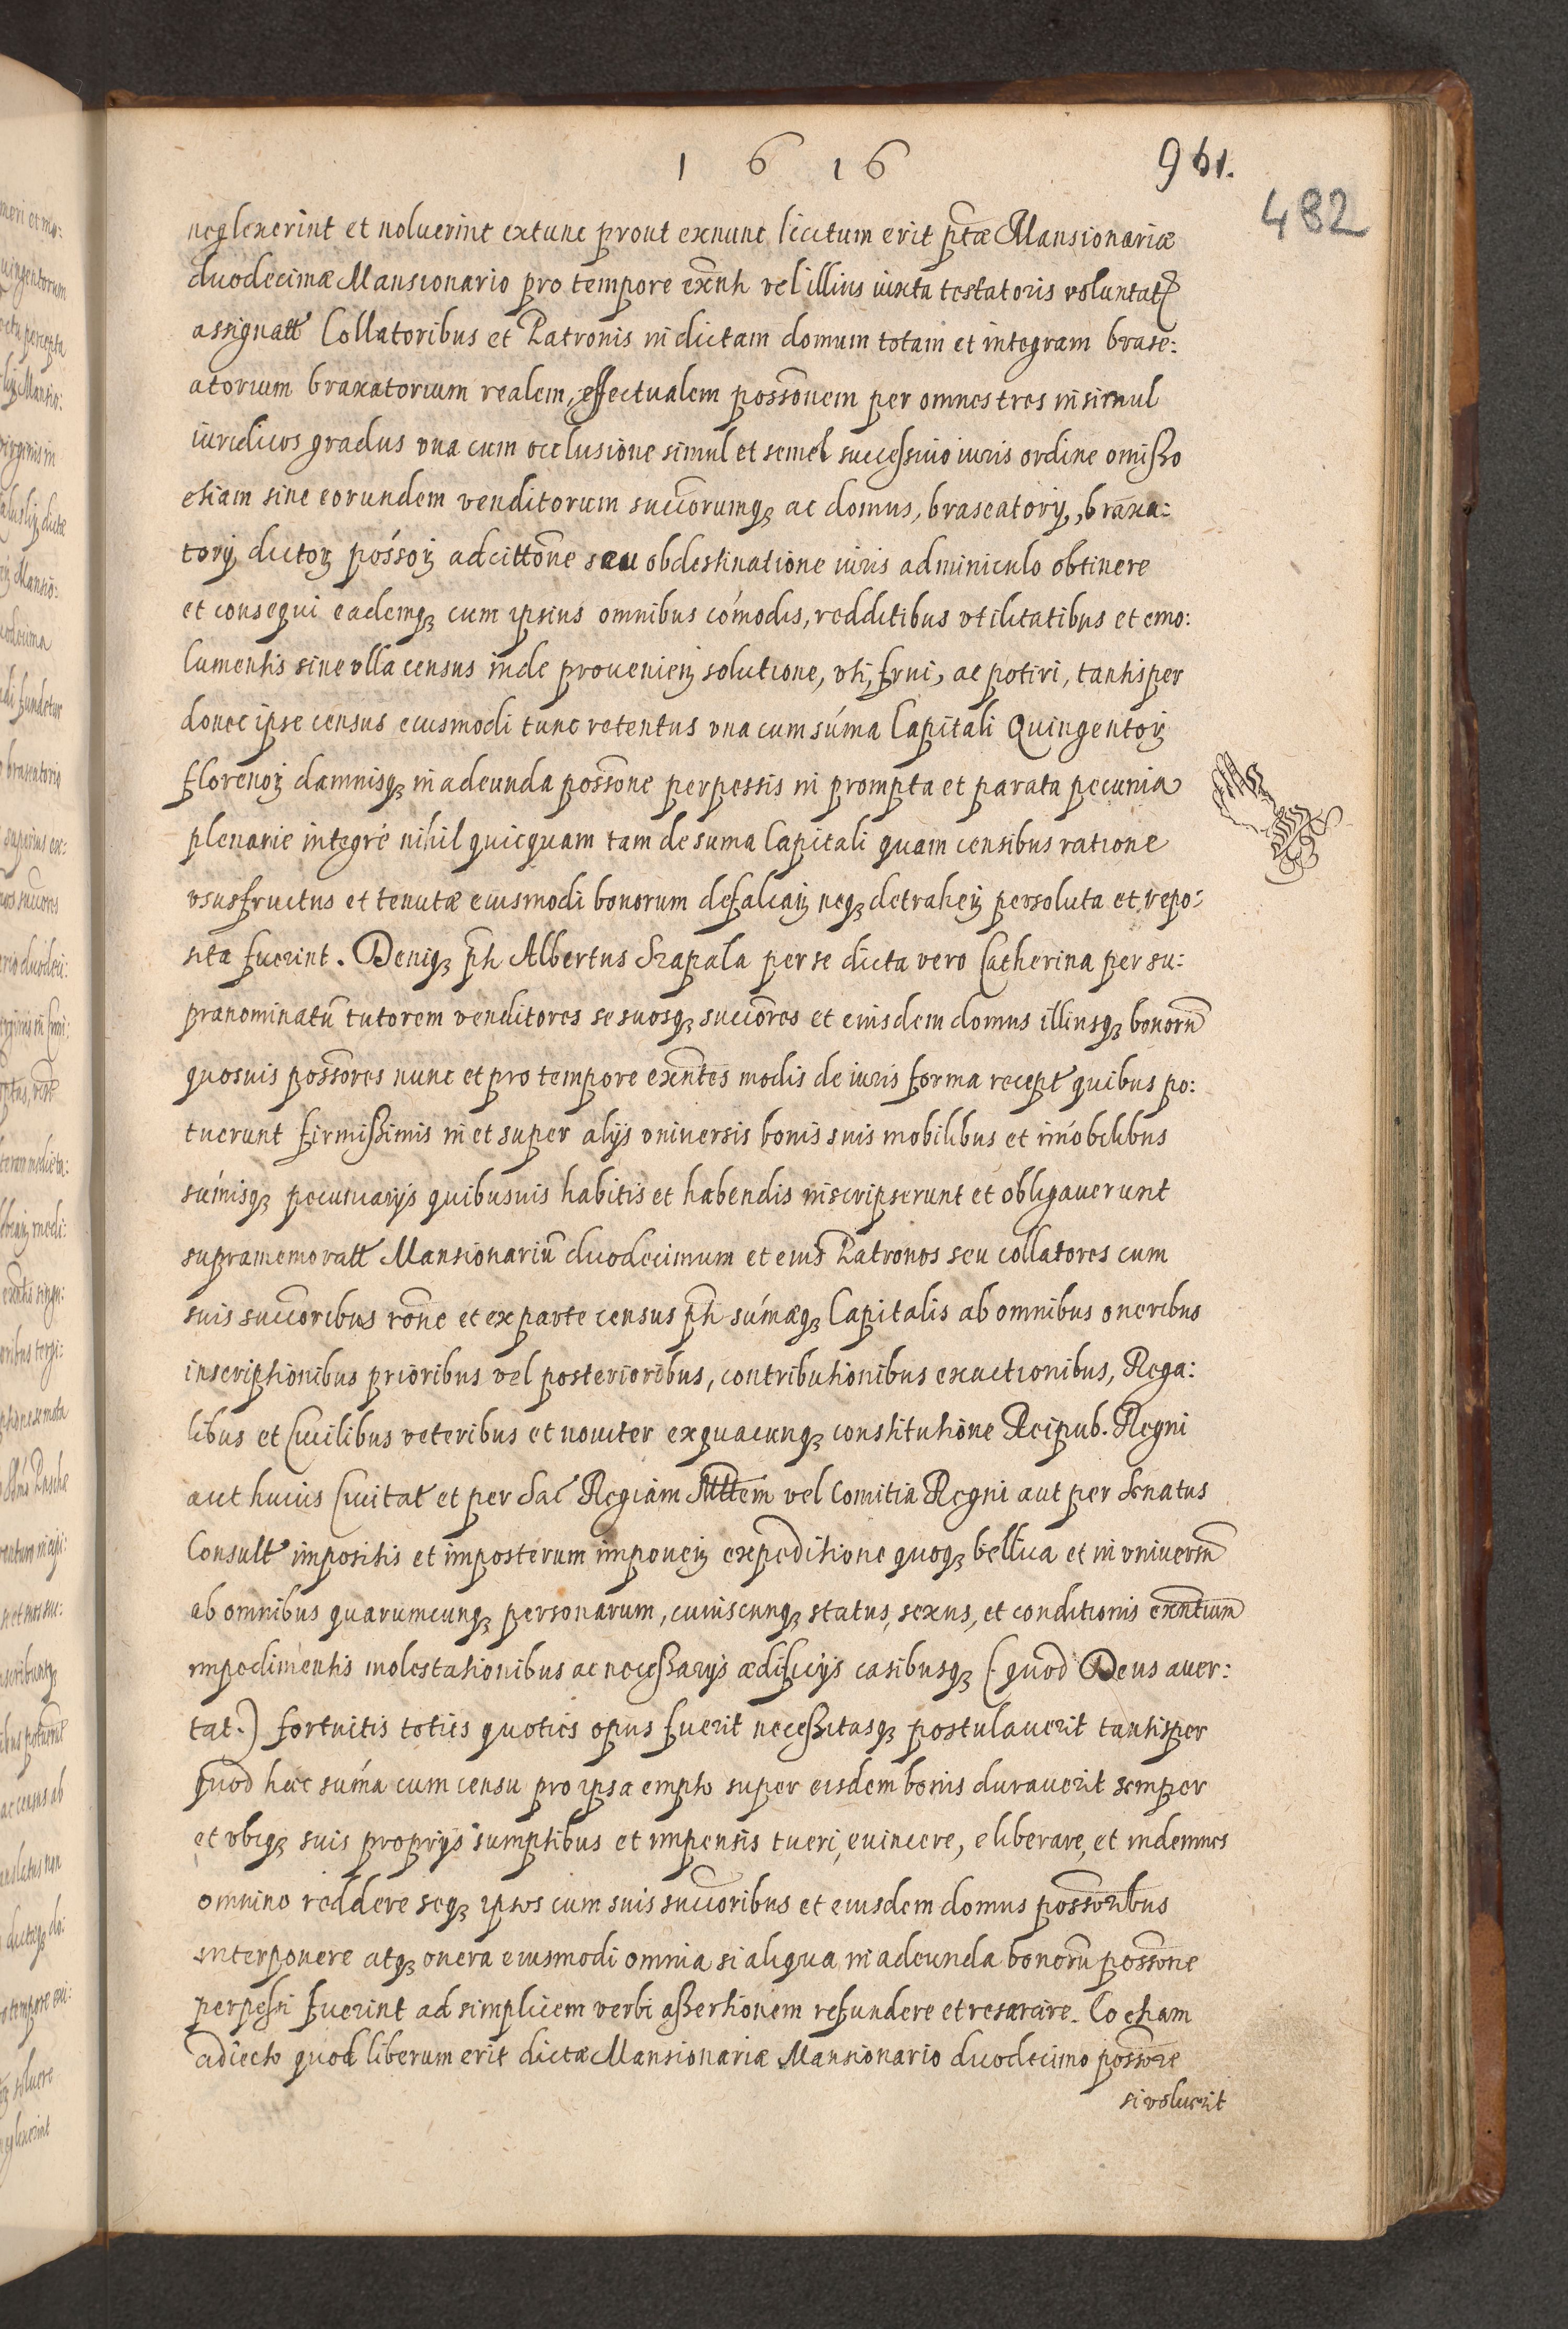 1 6 1 6
961.
482
neglexerint et noluerint extunc prout exnunc licitum erit ptæ Mansionariæ
duodecimæ Mansionario pro tempore exñti vel illius iuxta testatoris voluntatẽ
assignatt Collatoribus et Patronis in dictam domum totam et integram brase:
atorium braxatorium realem, effectualem possõnem per omnes tres insimul
iuridicos gradus vna cum occlusione simul et semel successiuo iuris ordine omisso
etiam sine eorundem venditorum succorumqꝫ ac domus, braseatorij, braxa:
torij dictoꝝ possoꝝ adcittõne seu obdestinatione iuris adminiculo obtinere
et consequi eademqꝫ cum ipsius omnibus cómodis, redditibus vtilitatibus et emo:
lumentis sine vlla census inde prouenieñ solutione, vti, frui, ac potiri, tantisper
donec ipse census eiusmodi tunc retentus vna cum súma Capitali Quingentoꝝ
florenoꝝ damnisqꝫ in adeunda possõne perpessis in prompta et parata pecunia
plenarie integré nihil quicquam tam de suma Capitali quam censibus ratione
vsusfructus et tenutæ eiusmodi bonorum defalcañ neqꝫ detraheñ persoluta et repo:
sita fuerint. Deniqꝫ pti Albertus Szapala per se dicta vero Catherina per su:
pranominatũ tutorem venditores se suosqꝫ succores et eiusdem domus illiusqꝫ bonorũ
quosuis possõres nunc et pro tempore exñtes modis de iuris forma recept quibus po:
tuerunt firmissimis in et super alijs vniuersis bonis suis mobilibus et imóbilibus
súmisqꝫ pecuniarijs quibusuis habitis et habendis inscripserunt et obligauerunt
supramemoratt Mansionariũ duodecimum et eius Patronos seu collatores cum
suis succoribus rõne et ex parte census pti súmæqꝫ Capitalis ab omnibus oneribus
inscriptionibus prioribus vel posterioribus, contributionibus exactionibus, Rega:
libus et Ciuilibus veteribus et nouiter ex quacunqꝫ constitutione Reipub. Regni
aut huius Ciuitat et per Sac Regiam Mttem vel Comitia Regni aut per Senatus
Consult impositis et imposterum imponeñ expeditione quoqꝫ bellica et in vniuersũ
ab omnibus quarumcunqꝫ personarum, cuiuscunqꝫ status, sexus, et conditionis exñtium
impedimentis molestationibus ac necessarijs ædificijs casibusqꝫ (quod Deus auer:
tat.) fortuitis toties quoties opus fuerit necessitasqꝫ postulauerit tantisper
quod hæc súma cum censu pro ipsa empto super eisdem bonis durauerit semper
et vbiqꝫ suis proprijs sumptibus et impensis tueri, euincere, eliberare, et indemnes
omnino reddere seqꝫ ipsos cum suis succoribus et eiusdem domus possõribus
interponere atqꝫ onera eiusmodi omnia si aliqua in adeunda bonorũ possõne
perpessi fuerint ad simplicem verbi assertionem refundere et resarcire. Eo etiam
adiecto quod liberum erit dictæ Mansionariæ Mansionario duodecimo possõre
si voluerit